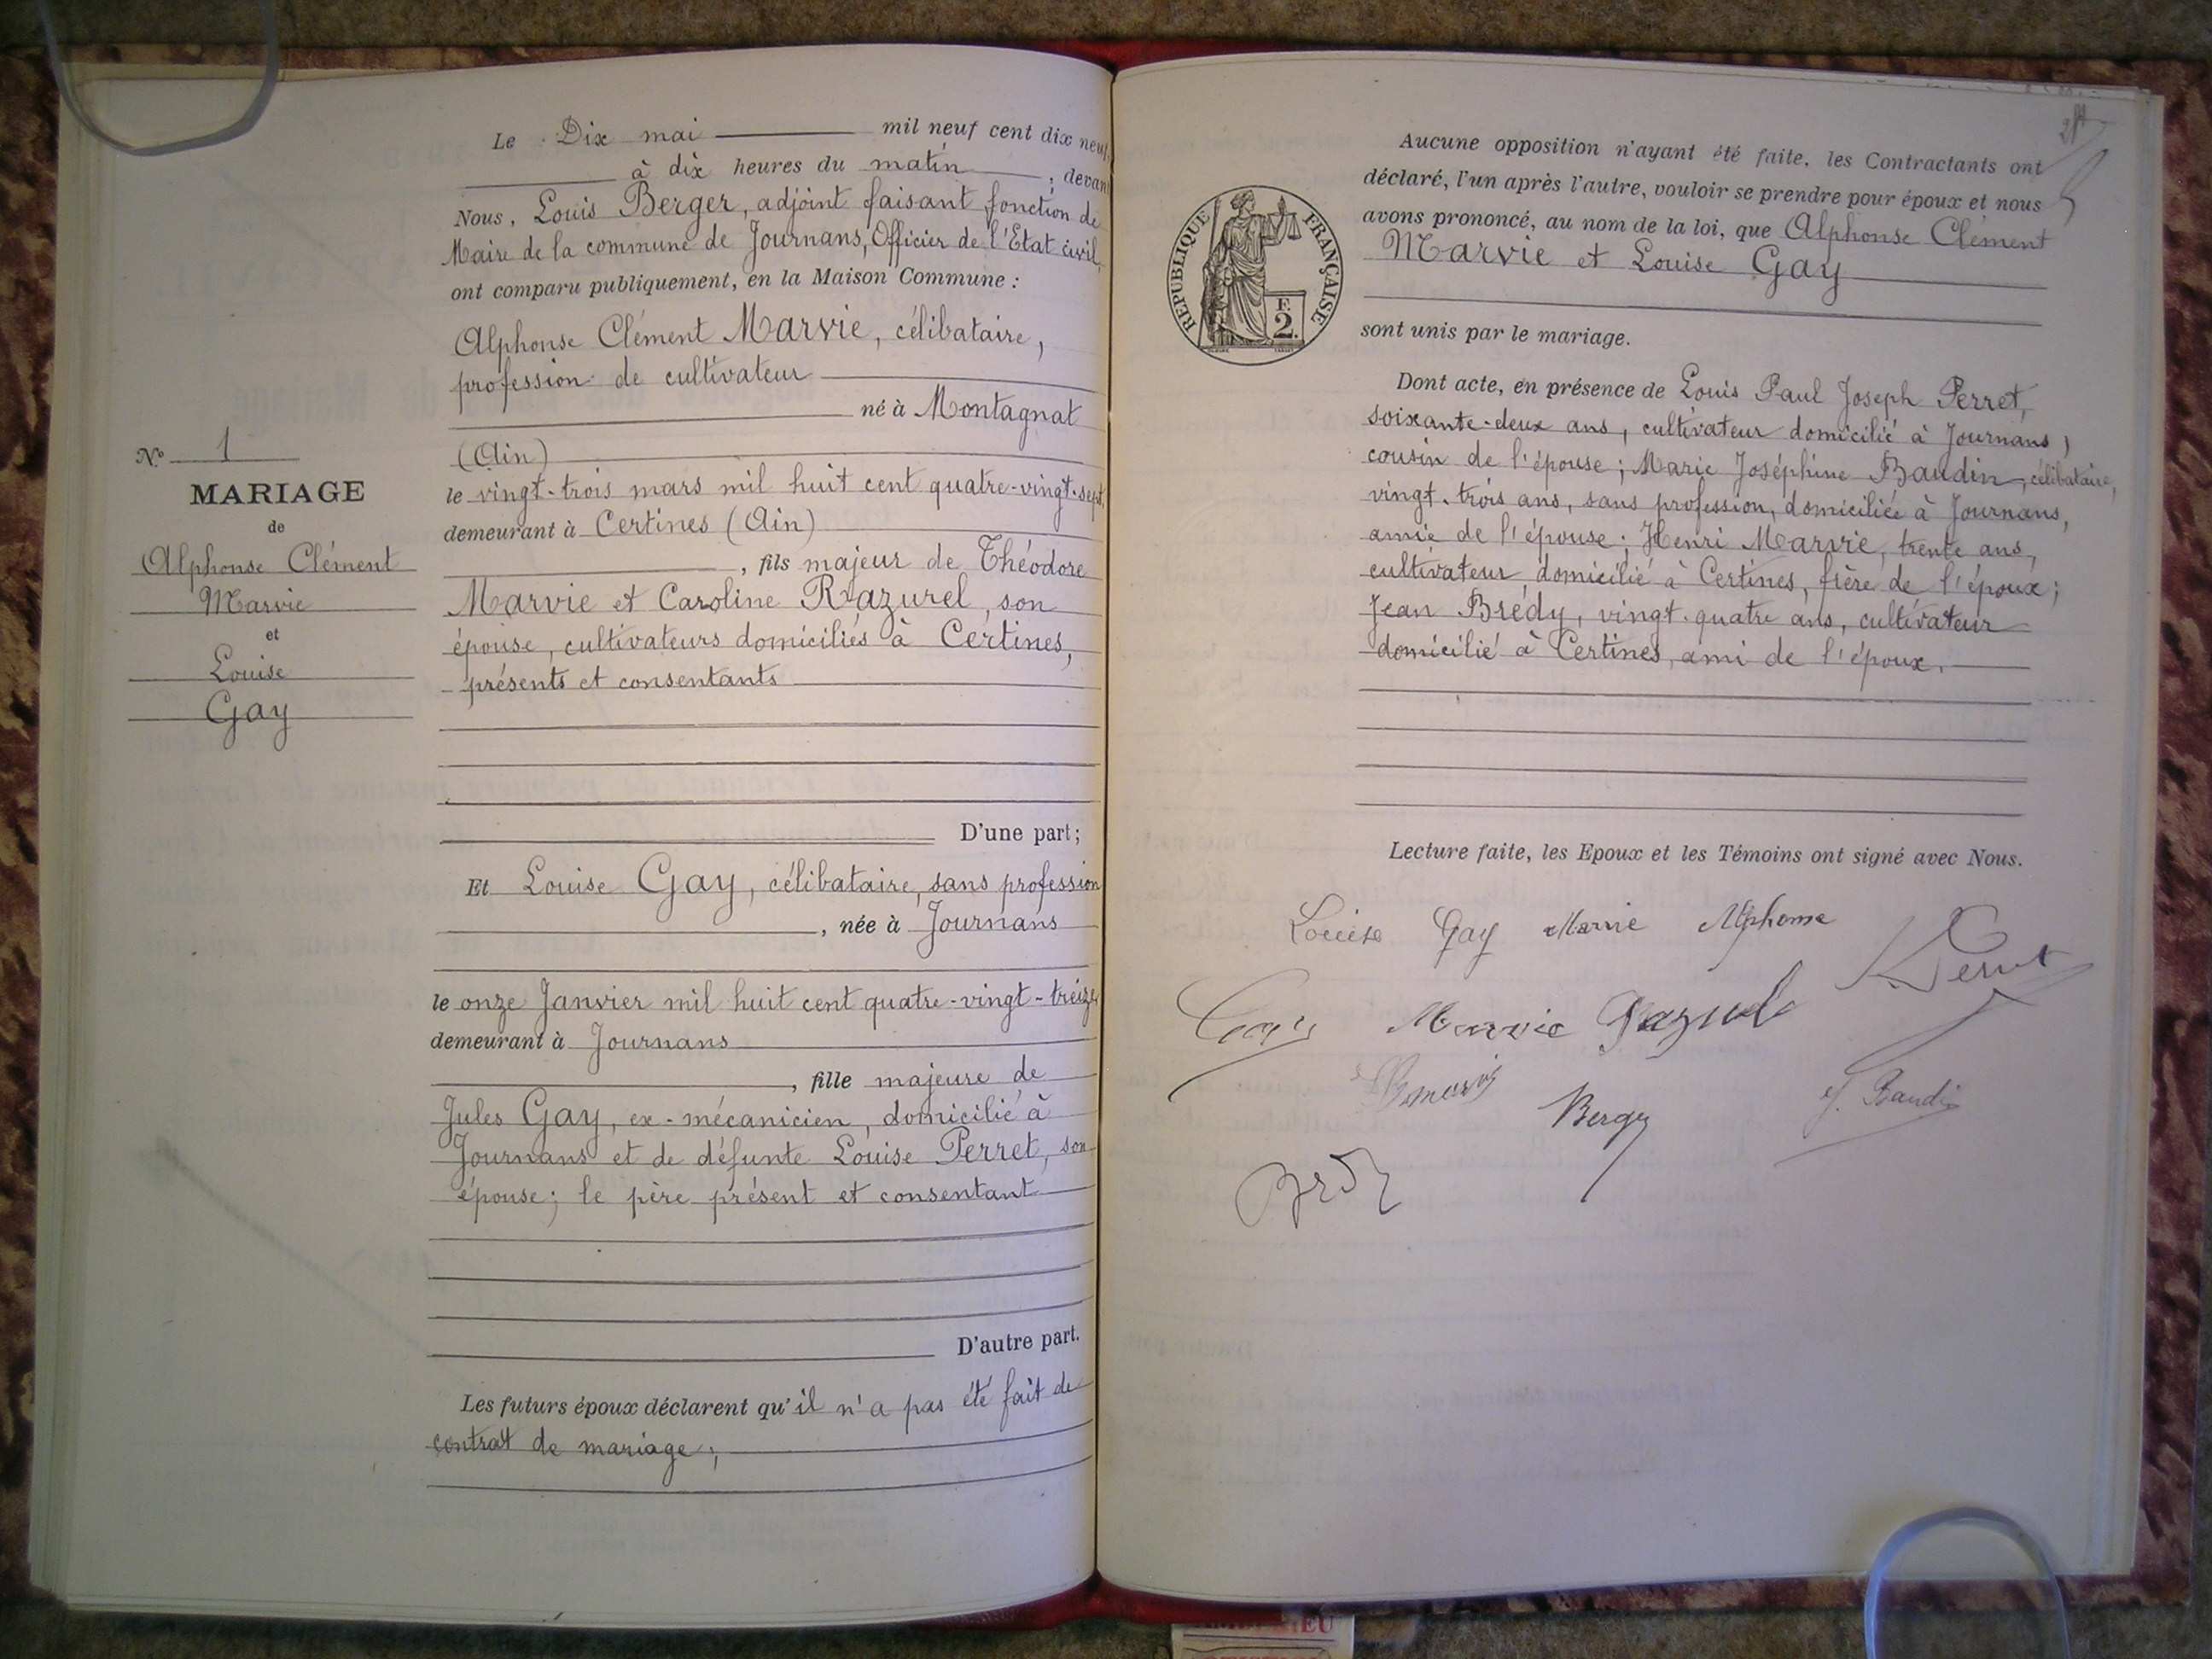 N.º 1
MARIAGE
de
Alphonse Clément
Marvie
et
Louise
Gay
Le Dix mai mil neuf cent dix neuf
à dix heures du matin, devant
Nous, Louis Berger, adjoint faisant fonction de
Maire de la commune de Journans, Officier de l'Etat civil,
ont comparu publiquement, en la Maison Commune :
Alphonse Clément Marvie, célibataire,
profession de cultivateur
né à Montagnat
(Ain)
le vingt-trois mars mil huit cent quatre-vingt-sept
demeurant à Certines (Ain)
, fils majeur de Théodore
Marvie et Caroline Razurel, son
épouse, cultivateurs domiciliés à Certines,
présents et consentants
D'une part ;
Et Louise Gay, célibataire, sans profession
, née à Journans
le onze Janvier mil huit cent quatre-vingt-treize
demeurant à Journans
, fille majeure de
Jules Gay, ex-mécanicien, domicilié à
Journans et de défunte Louise Perret, son
épouse; le père présent et consentant
D'autre part.
Les futurs époux déclarent qu'il n'a pas été fait de
contrat de mariage ;
REPUBLIQUE FRANÇAISE
F.
2.
Aucune opposition n'ayant été faite, les Contractants ont
déclaré, l'un après l'autre, vouloir se prendre pour époux et nous
avons prononcé, au nom de la loi, que Alphonse Clément
Marvie et Louise Gay
sont unis par le mariage.
Dont acte, en présence de Louis Paul Joseph Perret,
soixante-deux ans, cultivateur domicilié à Journans,
cousin de l'épouse; Marie Joséphine Baudin, célibataire,
vingt-trois ans, sans profession, domiciliée à Journans,
amie de l'épouse; Henri Marvie, trente ans,
cultivateur domicilié à Certines, frère de l'époux;
Jean Brédy, vingt-quatre ans, cultivateur
domicilié à Certines, ami de l'époux.
Lecture faite, les Epoux et les Témoins ont signé avec Nous.
Louise Gay Marvie Alphonse
Perret
Gay Marvie Razurel
Berger
J. Baudin